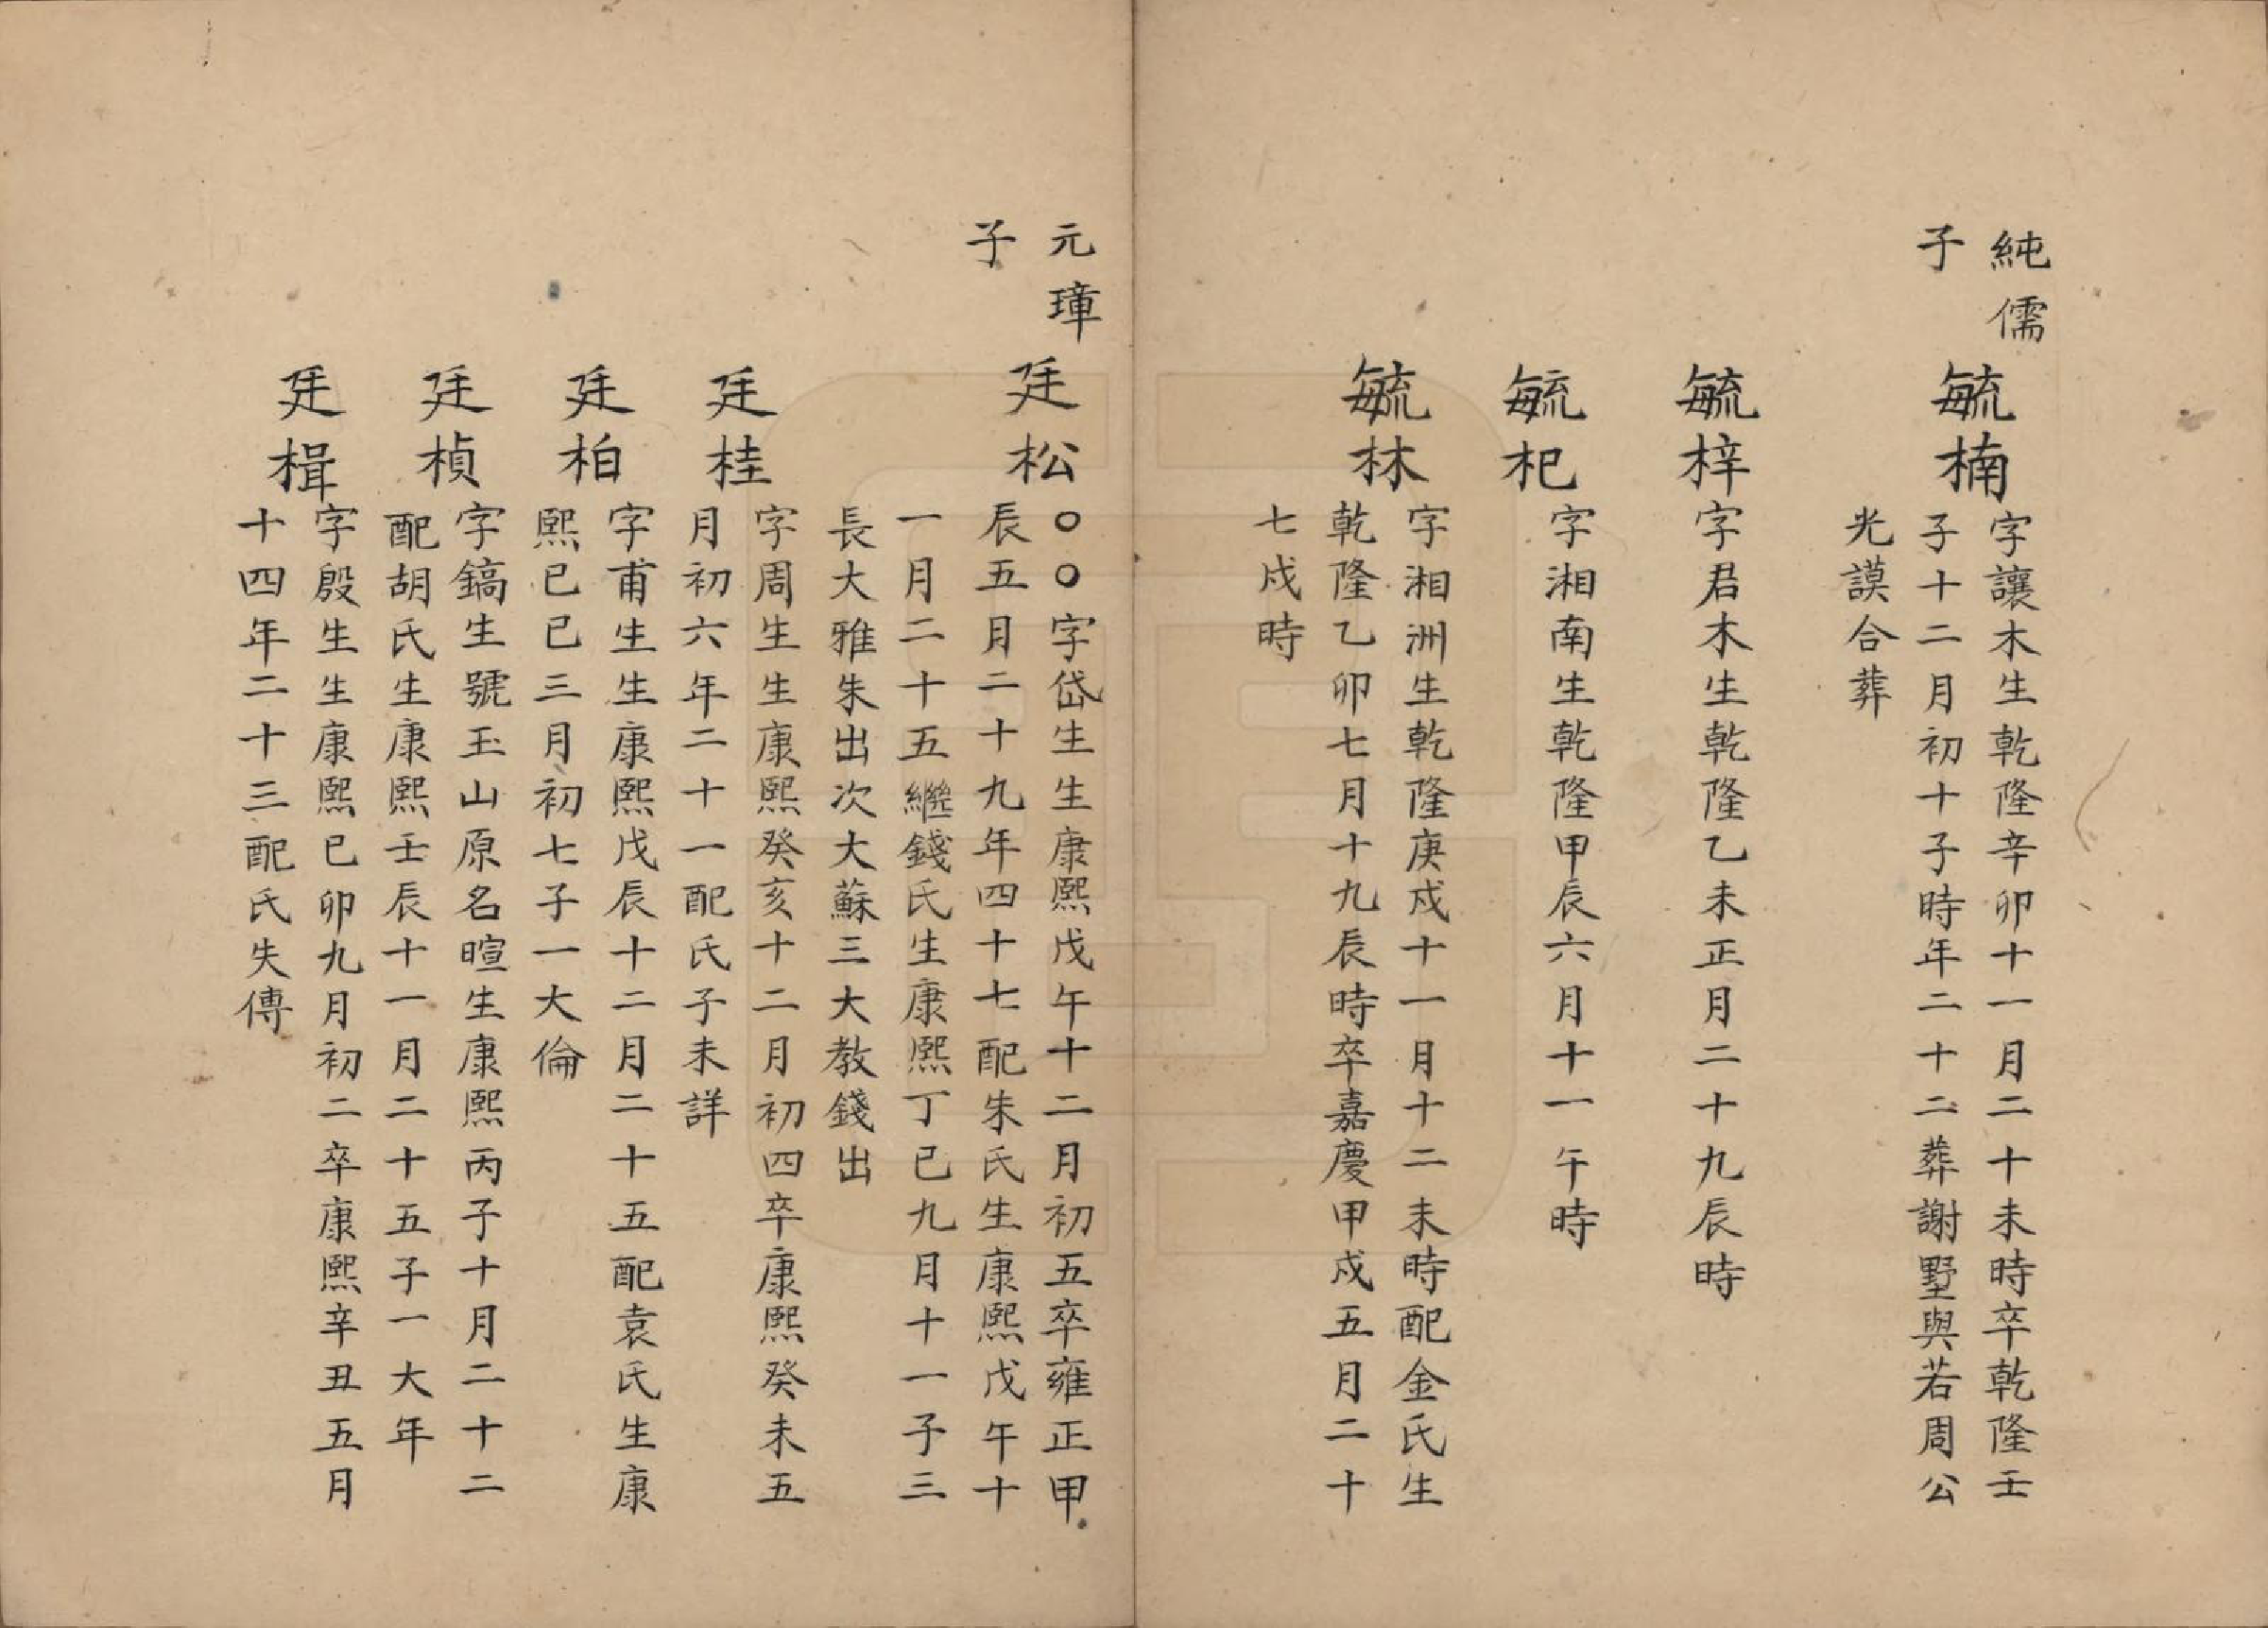 純儒
子
毓楠
字讓木生乾隆辛卯十一月二十未時卒乾隆壬
子十二月初十子時年二十二葬謝墅與若周公
光謨合葬
毓梓
字君木生乾隆乙未正月二十九辰時
毓杞
字湘南生乾隆甲辰六月十一午時
毓林
字湘洲生乾隆庚戍十一月十二未時配金氏生
乾隆乙卯七月十九辰時卒嘉慶甲戍五月二十
七戍時
元璋
子
廷松
〇〇字岱生生康熙戊午十二月初五卒雍正甲
辰五月二十九年四十七配朱氏生康熙戊午十
一月二十五繼錢氏生康熙丁巳九月十一子三
長大雅朱出次大蘇三大教錢出
廷桂
字周生生康熙癸亥十二月初四卒康熙癸未五
月初六年二十一配氏子未詳
廷柏
字甫生生康熙戊辰十二月二十五配袁氏生康
熙已巳三月初七子一大倫
廷楨
字鎬生號玉山原名暄生康熙丙子十月二十二
配胡氏生康熙壬辰十一月二十五子一大年
廷楫
字殷生生康熙已卯九月初二卒康熙辛丑五月
十四年二十三配氏失傳